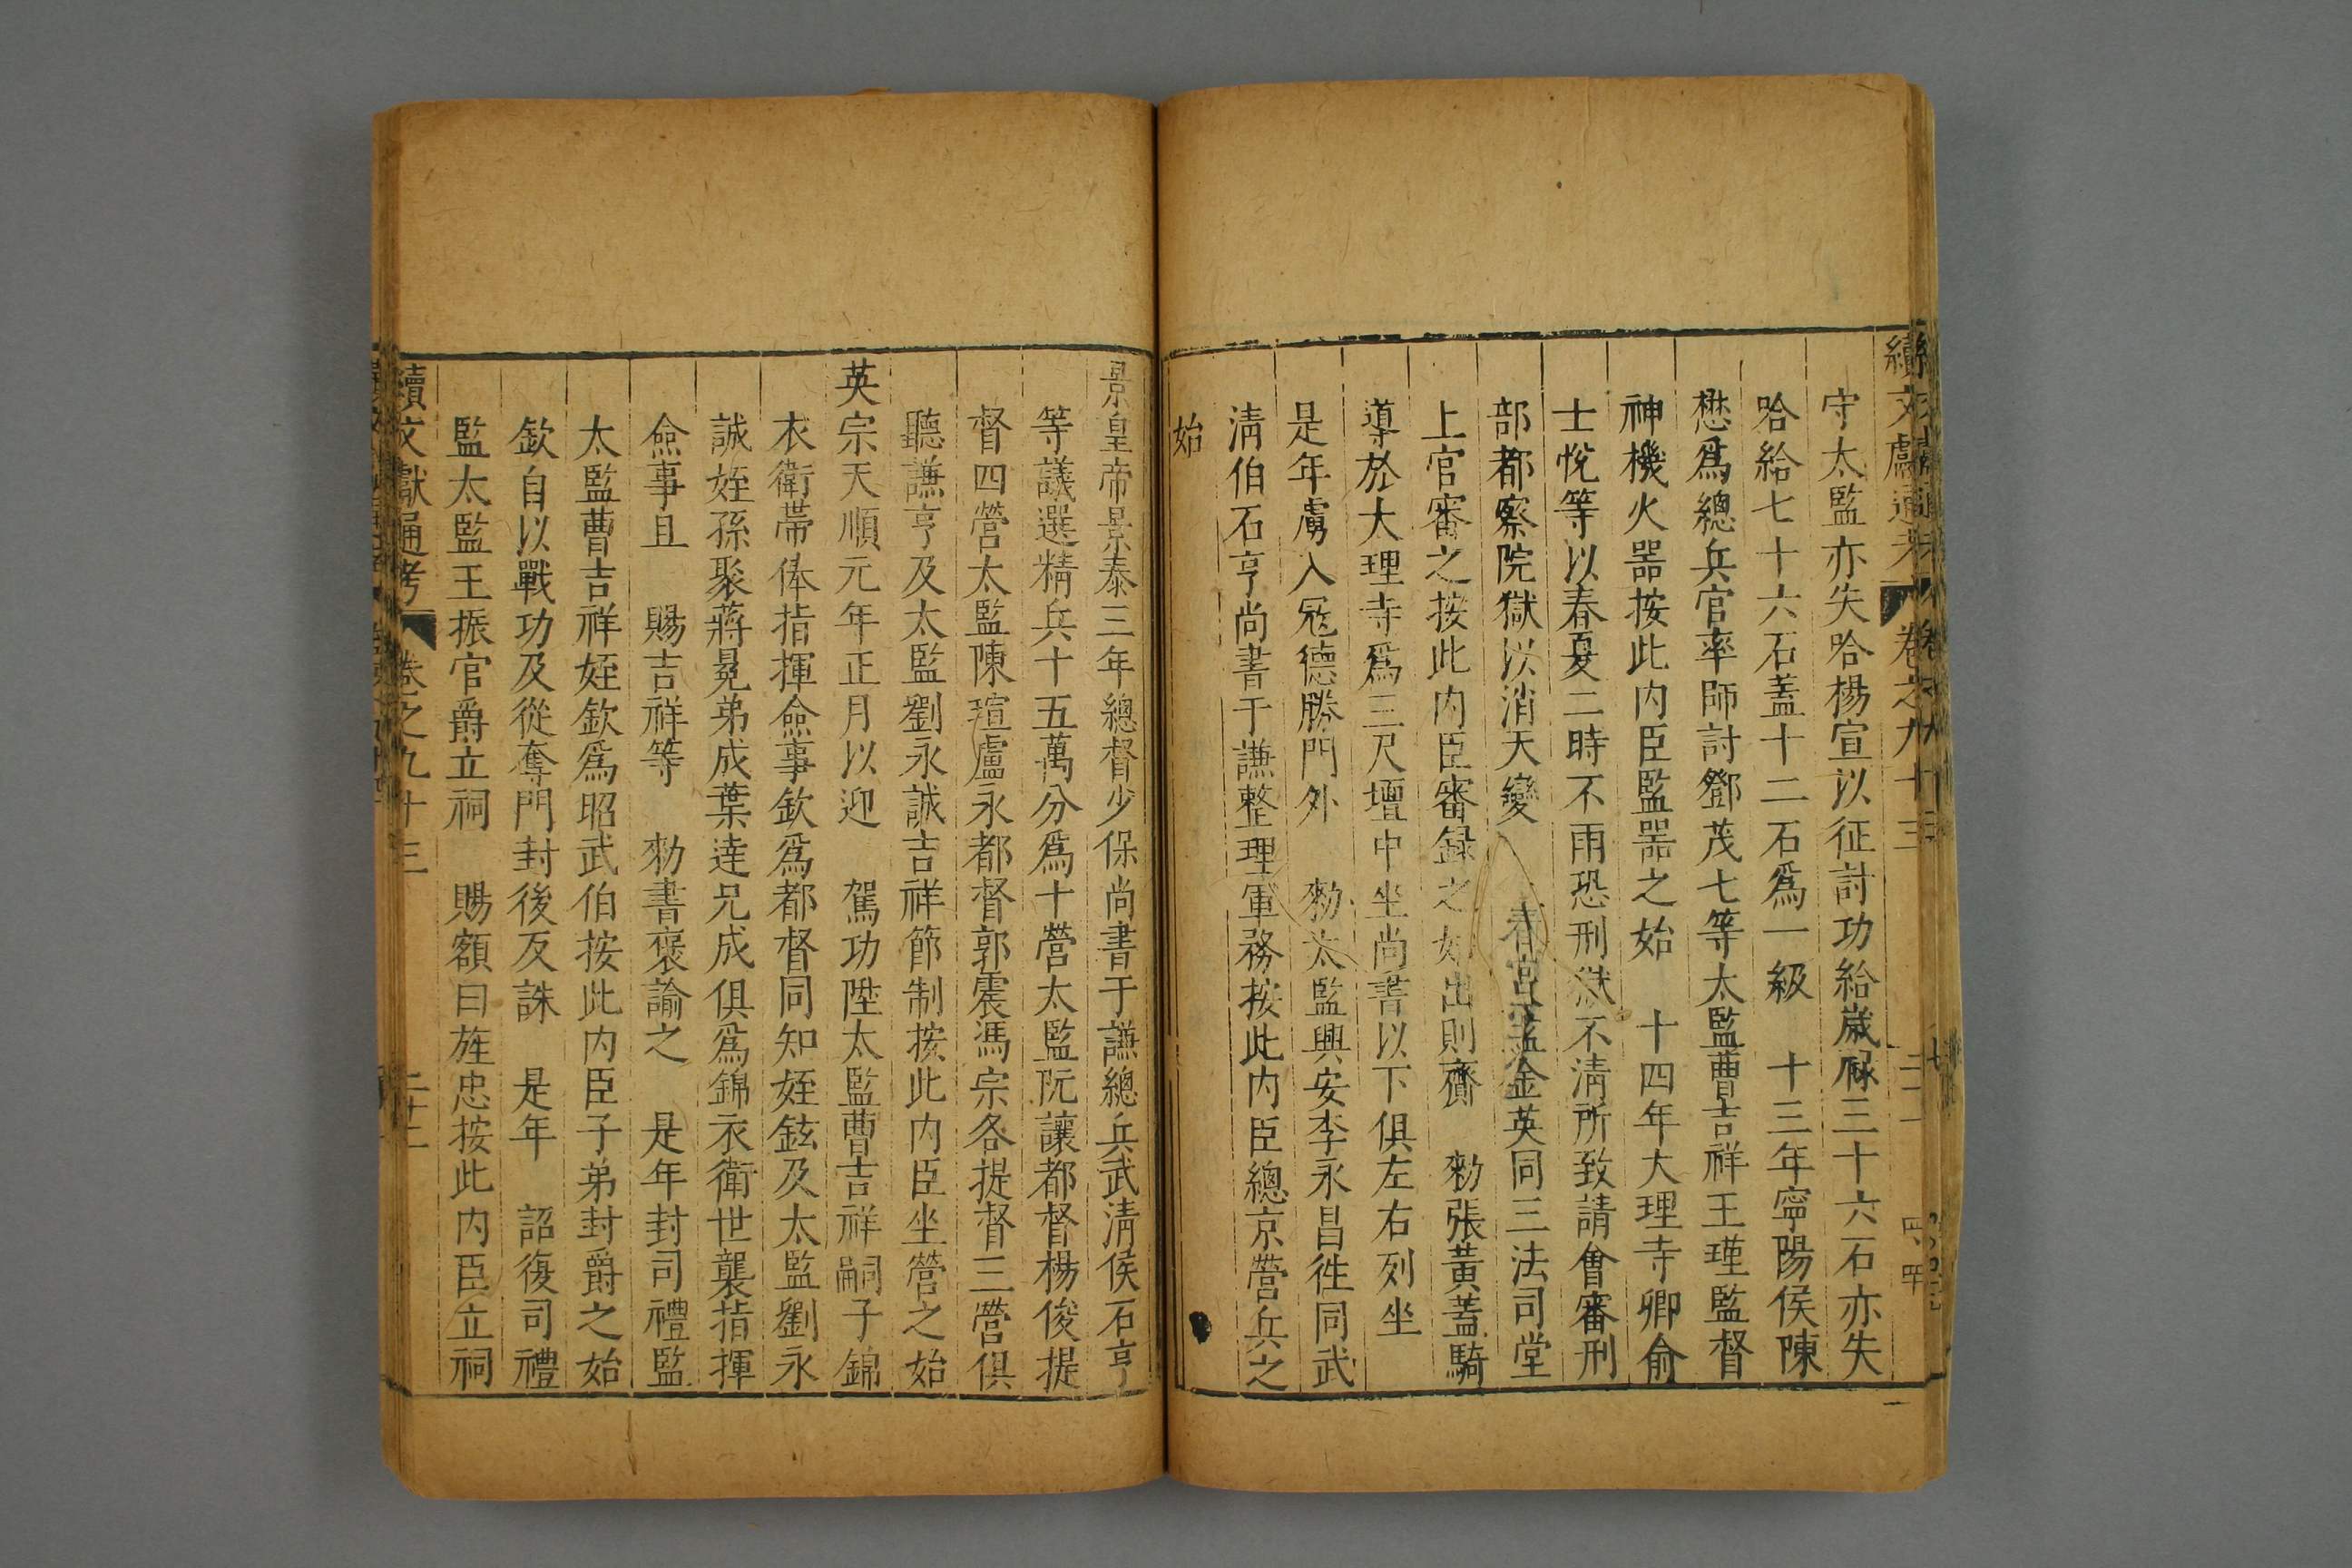 續文獻通考 卷之九十三
守太監亦失哈楊宣以征討功給歲祿三十六石亦失
哈給七十六石蓋十二石爲一級 十三年寧陽侯陳
懋爲總兵官率師討鄧茂七等太監曹吉祥王瑾監督
神機火噐按此内臣監噐之始 十四年大理寺卿俞
士悅等以春夏二時不雨恐刑獄不淸所致請會審刑
部都察院獄以消天變 金英同三法司堂
上官審之按此内臣審録之始出則齎 勑張黃蓋騎
導於大理寺爲三尺壇中坐尚書以下俱左右列坐
是年虜入寇德勝門外 勑太監興安李永昌徃同武
淸伯石亨尚書于謙整理軍務按此内臣總京營兵之
始
景皇帝景泰三年總督少保尚書于謙總兵武淸侯石亨
等議選精兵十五萬分爲十營太監阮讓都督楊俊提
督四營太監陳瑄盧永都督郭震馮宗各提督三營俱
聽謙亨及太監劉永誠吉祥節制按此内臣坐營之始
英宗天順元年正月以迎 駕功陞太監曹吉祥嗣子錦
衣衛帶俸指揮僉事欽爲都督同知姪鉉及太監劉永
誠姪孫聚蔣冕弟成葉達兄成俱爲錦衣衛世襲指揮
僉事且 賜吉祥等 勑書褒諭之 是年封司禮監
太監曹吉祥姪欽爲昭武伯按此内臣子弟封爵之始
欽自以戰功及從奪門封後反誅 是年 詔復司禮
監太監王振官爵立祠 賜額曰旌忠按此内臣立祠
續文獻通考 卷之九十三 二十二